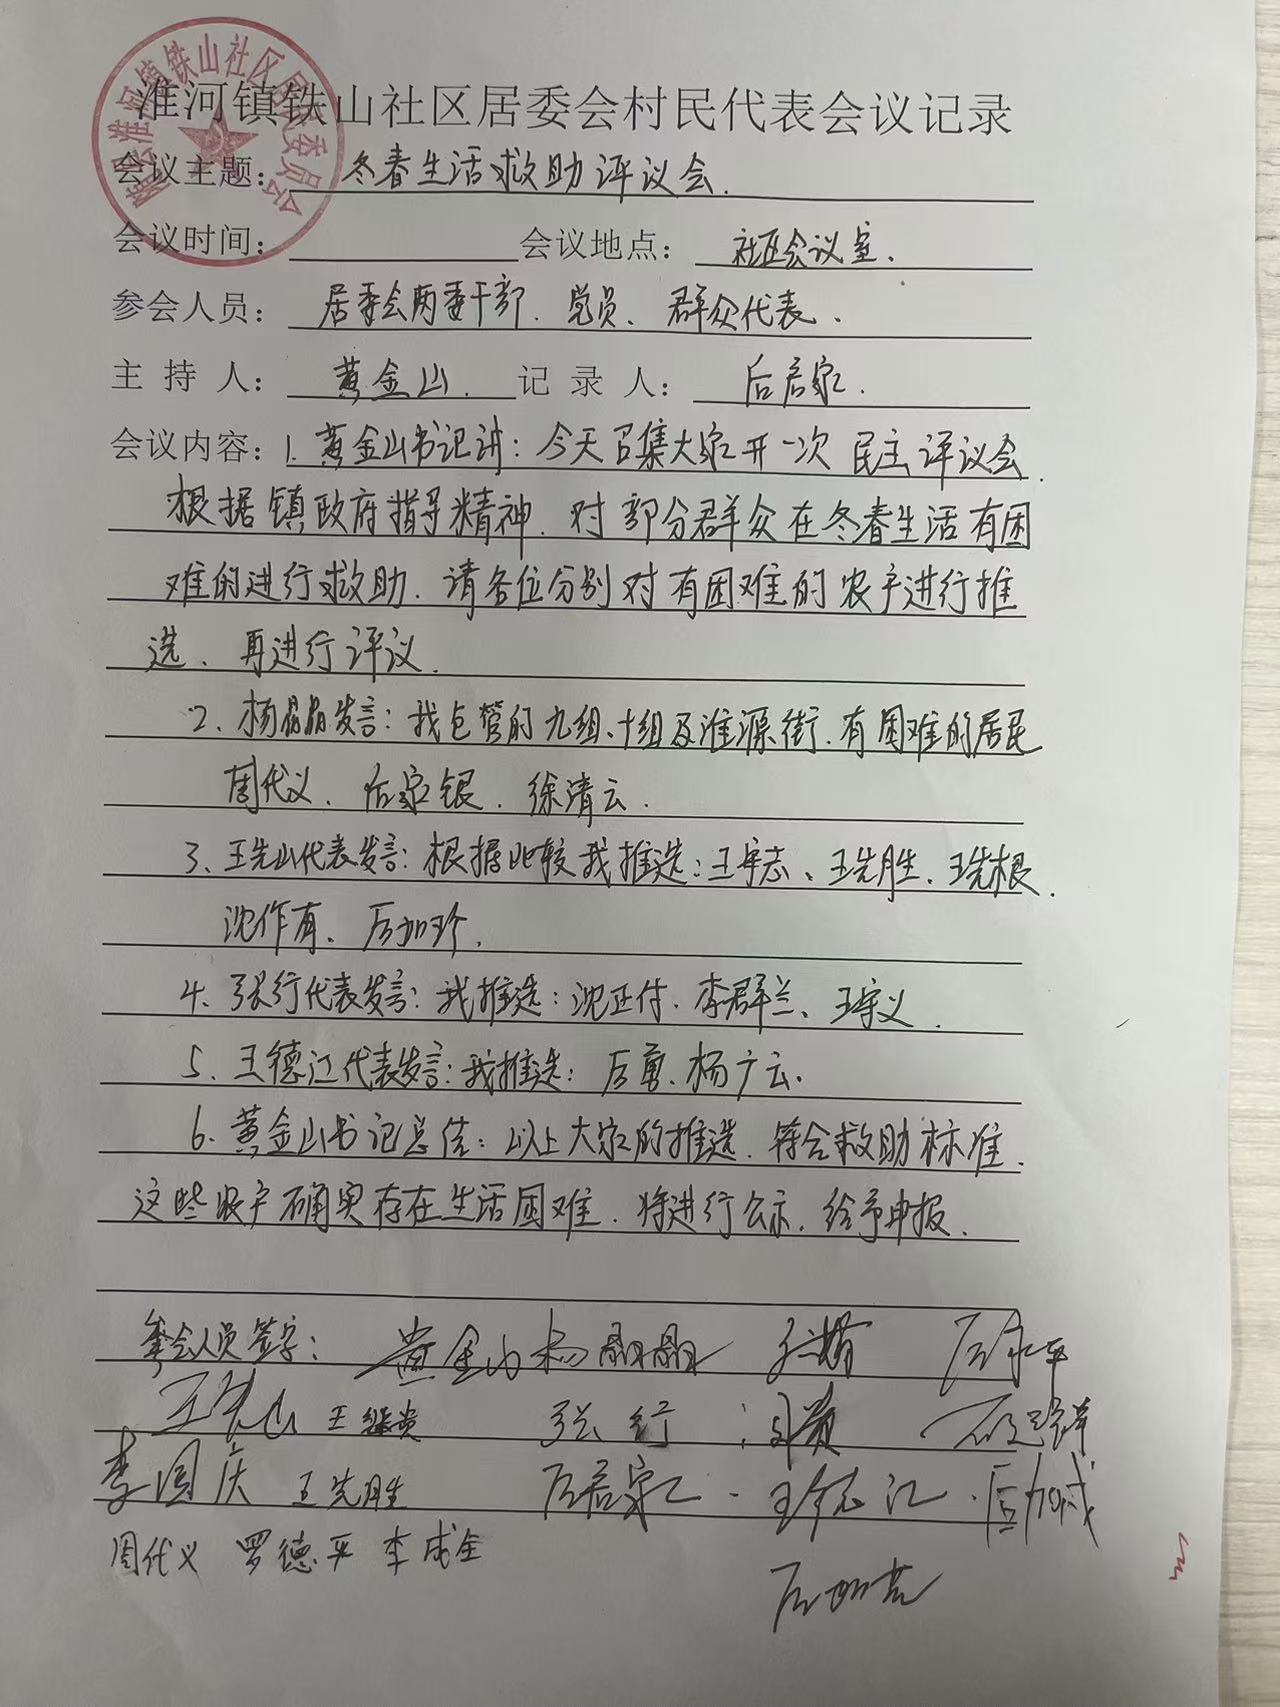 淮河镇铁山社区居委会村民代表会议记录
会议主题：冬春生活救助评议会.
会议时间： 会议地点：社区会议室.
参会人员：居委会两委干部. 党员、群众代表.
主 持 人：黄金山. 记 录 人：后启家.
会议内容：1. 黄金山书记讲：今天召集大家开一次民主评议会.
根据镇政府指导精神. 对部分群众在冬春生活有困
难的进行救助. 请各位分别对有困难的农户进行推
选、再进行评议.
2、杨晶晶发言：我包管的九组、十组及淮源街. 有困难的居民
周代义、后家银、徐清云.
3、王先山代表发言：根据比较我推选：王宇志、王先胜、王先根.
沈作有、后加珍.
4、张行代表发言：我推选：沈正付、李群兰、王宇义.
5、王德江代表发言：我推选：后勇、杨广云.
6、黄金山书记总结：以上大家的推选. 符合救助标准.
这些农户确实存在生活困难. 将进行公示. 给予申报.
参会人员签字：黄金山 杨晶晶
王先山 王继贵 张行
李国庆 王先胜 后启家 王德江 后加成
周代义 罗德平 李成全